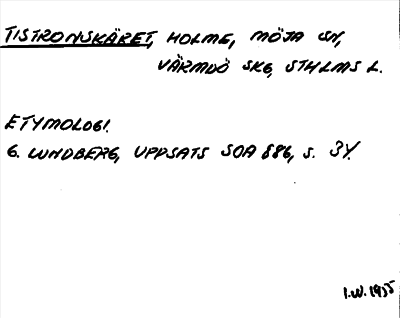 TISTRONSKÄRET, HOLME, MÖJA SN,
VÄRMDÖ SKG, STHLMS L.
ETYMOLOGI.
G. LUNDBERG, UPPSATS SOA 886, S. 34.
I.W. 1955